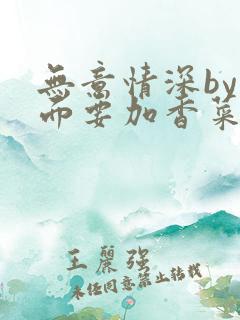 無意情深by
而要加香菜
王麗强
未任同意禁止转載